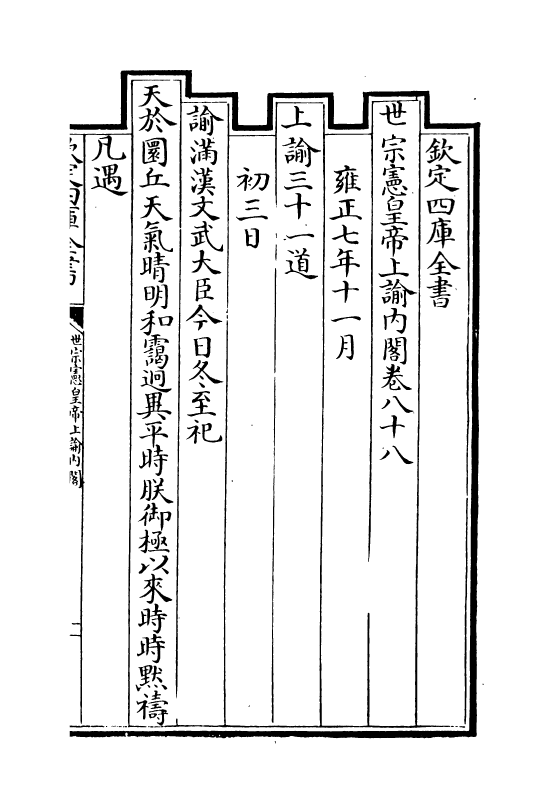 欽定四庫全書
世宗憲皇帝上諭內閣卷八十八
雍正七年十一月
上諭三十一道
初三日
諭滿漢文武大臣今日冬至祀
天於圜丘天氣晴明和靄迥異平時朕御極以來時時黙禱
凡遇
欽定四庫全書
世宗憲皇帝上諭內閣